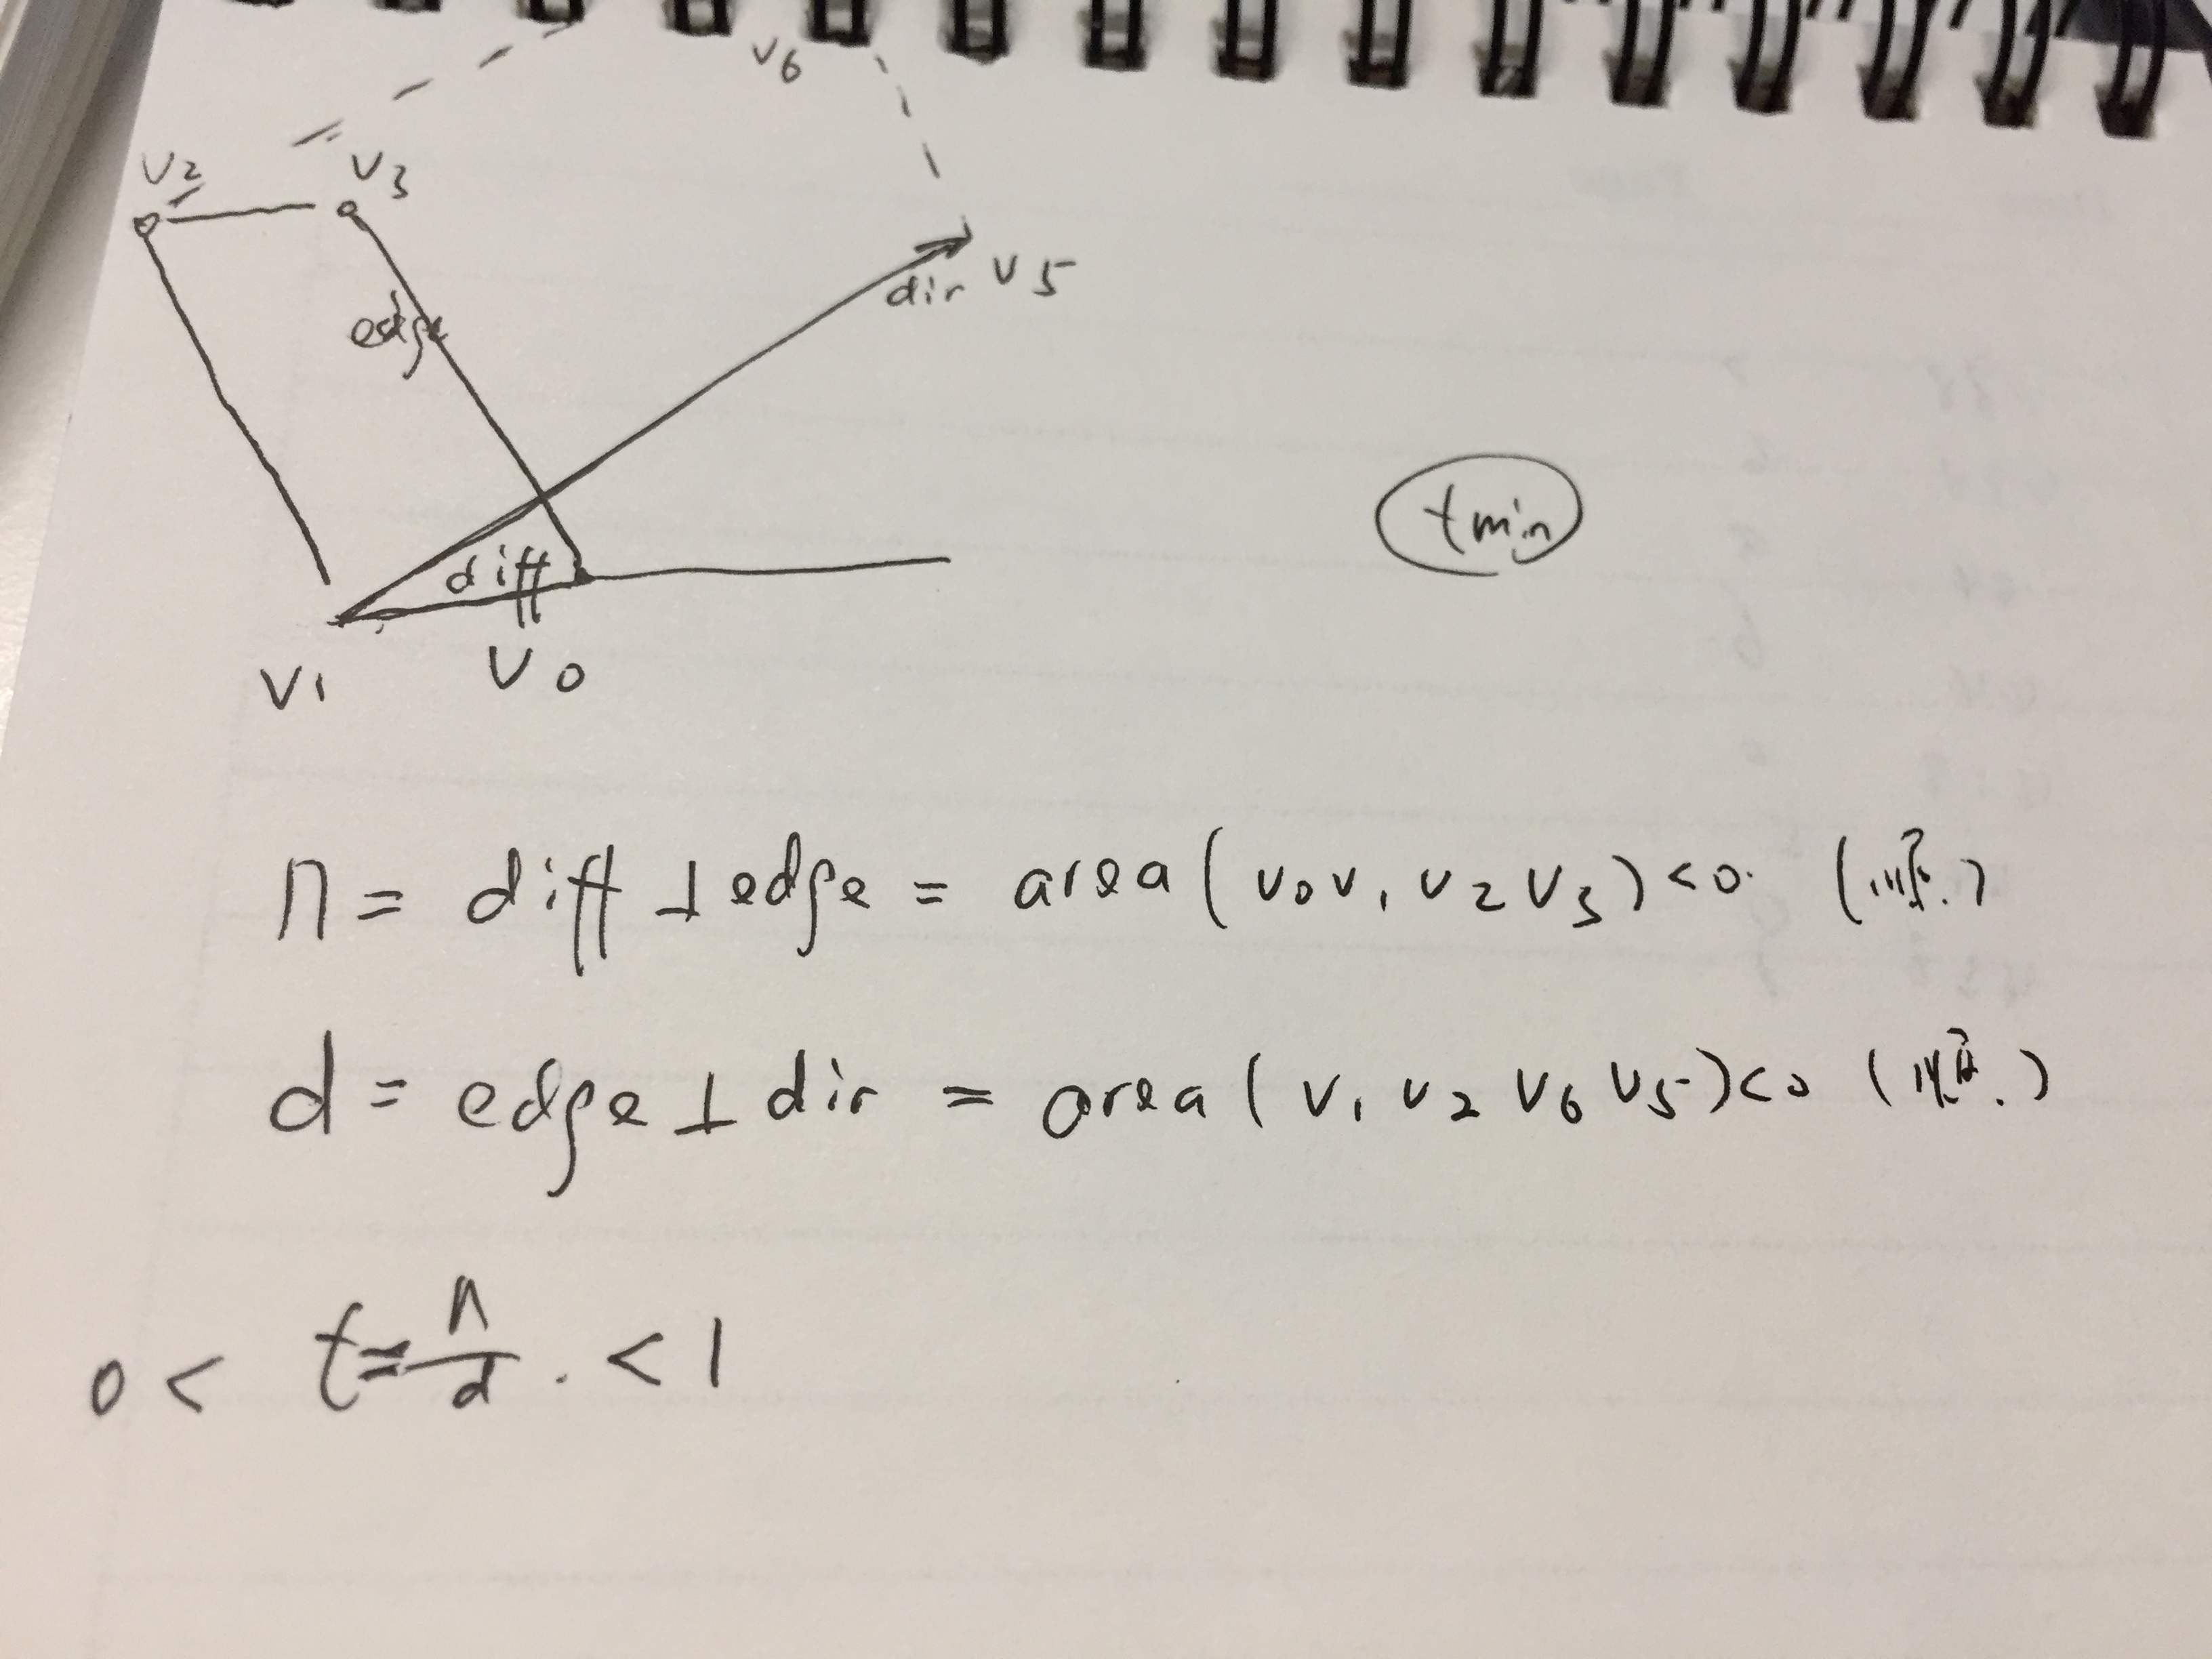 v2
v3
v6
edge
diff
dir v5
v1
v0
tmin
n = diff ⊥ edge = area(v0 v1 v2 v3) < 0.
d = edge ⊥ dir = area(v1 v2 v6 v5) < 0
0 < t = n/d . < 1